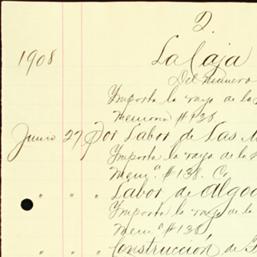 2.
1908 La Caja
Del Numero
Importe la raya de la
Memoria # 128
Junio 27 Por Labor de Las M
Importe la raya de la
Mem.ª # 138. Co
" " " Labor de Algod
Importe la raya de la
Mem.ª # 138
" " " Construcción de